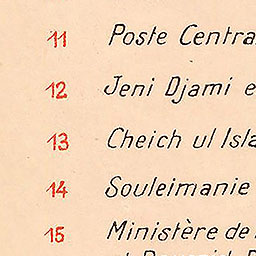 11 Poste Centra
12 Jeni Djami e
13 Cheich ul Isla
14 Souleimanie
15 Ministère de